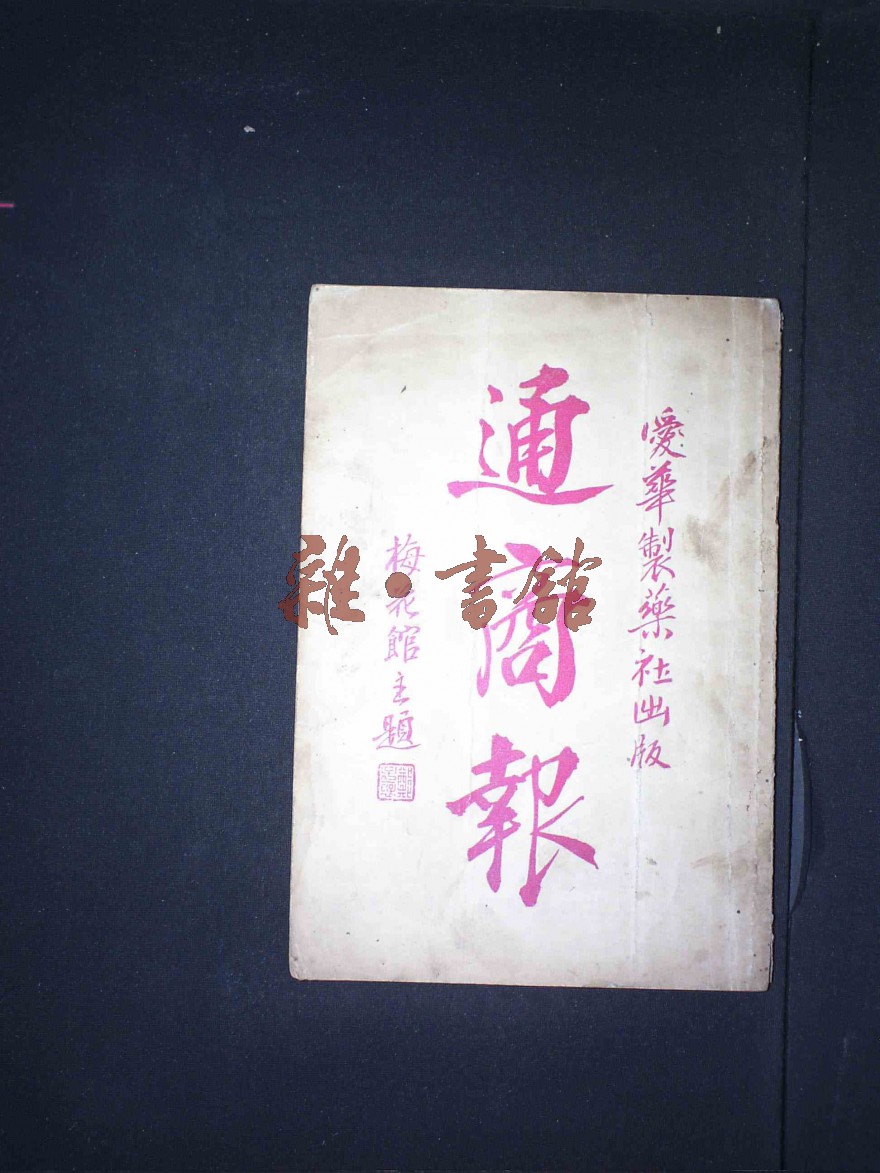 愛華製藥社出版
通商報
梅花館主題
雜·書館